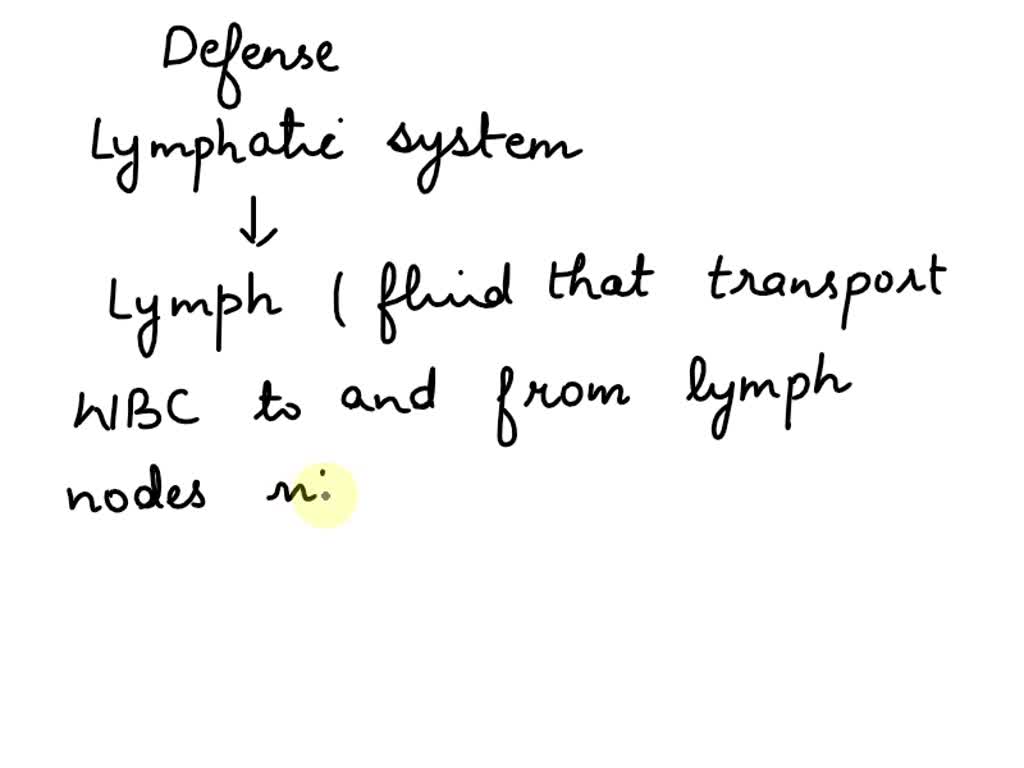 Defense
Lymphatic system
↓
Lymph ( fluid that transport
WBC to and from lymph
nodes